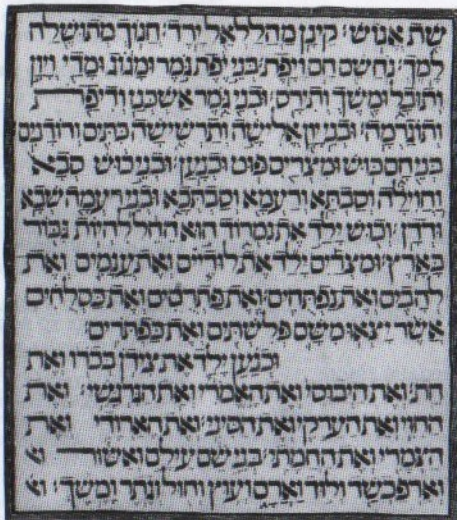 שת אנוש׃ קינן מהללאל ירד׃ חנוך מתושלח
למך׃ נח שם חם ויפת׃ בני יפת גמר ומגוג ומדי ויון
ותובל ומשך ותירס׃ ובני גמר אשכנז ודיפת
ותוגרמה׃ ובני יון אלישה ותרשישה כתים ורודנים
בני חם כוש ומצרים פוט וכנען׃ ובני כוש סבא
וחוילה וסבתא ורעמא וסבתכא ובני רעמה שבא
ודדן׃ וכוש ילד את נמרוד הוא החל להיות גבור
בארץ׃ ומצרים ילד את לודיים ואת ענמים ואת
להבים ואת נפתחים׃ ואת פתרסים ואת כסלחים
אשר יצאו משם פלשתים ואת כפתרים
וכנען ילד את צידון בכרו ואת
חת׃ ואת היבוסי ואת האמרי ואת הגרגשי׃ ואת
החוי ואת הערקי ואת הסיני׃ ואת הארודי ואת
הצמרי ואת החמתי׃ בני שם עילם ואשור וא
וארפכשד ולוד וארם ועוץ וחול וגתר ומשך׃ וא